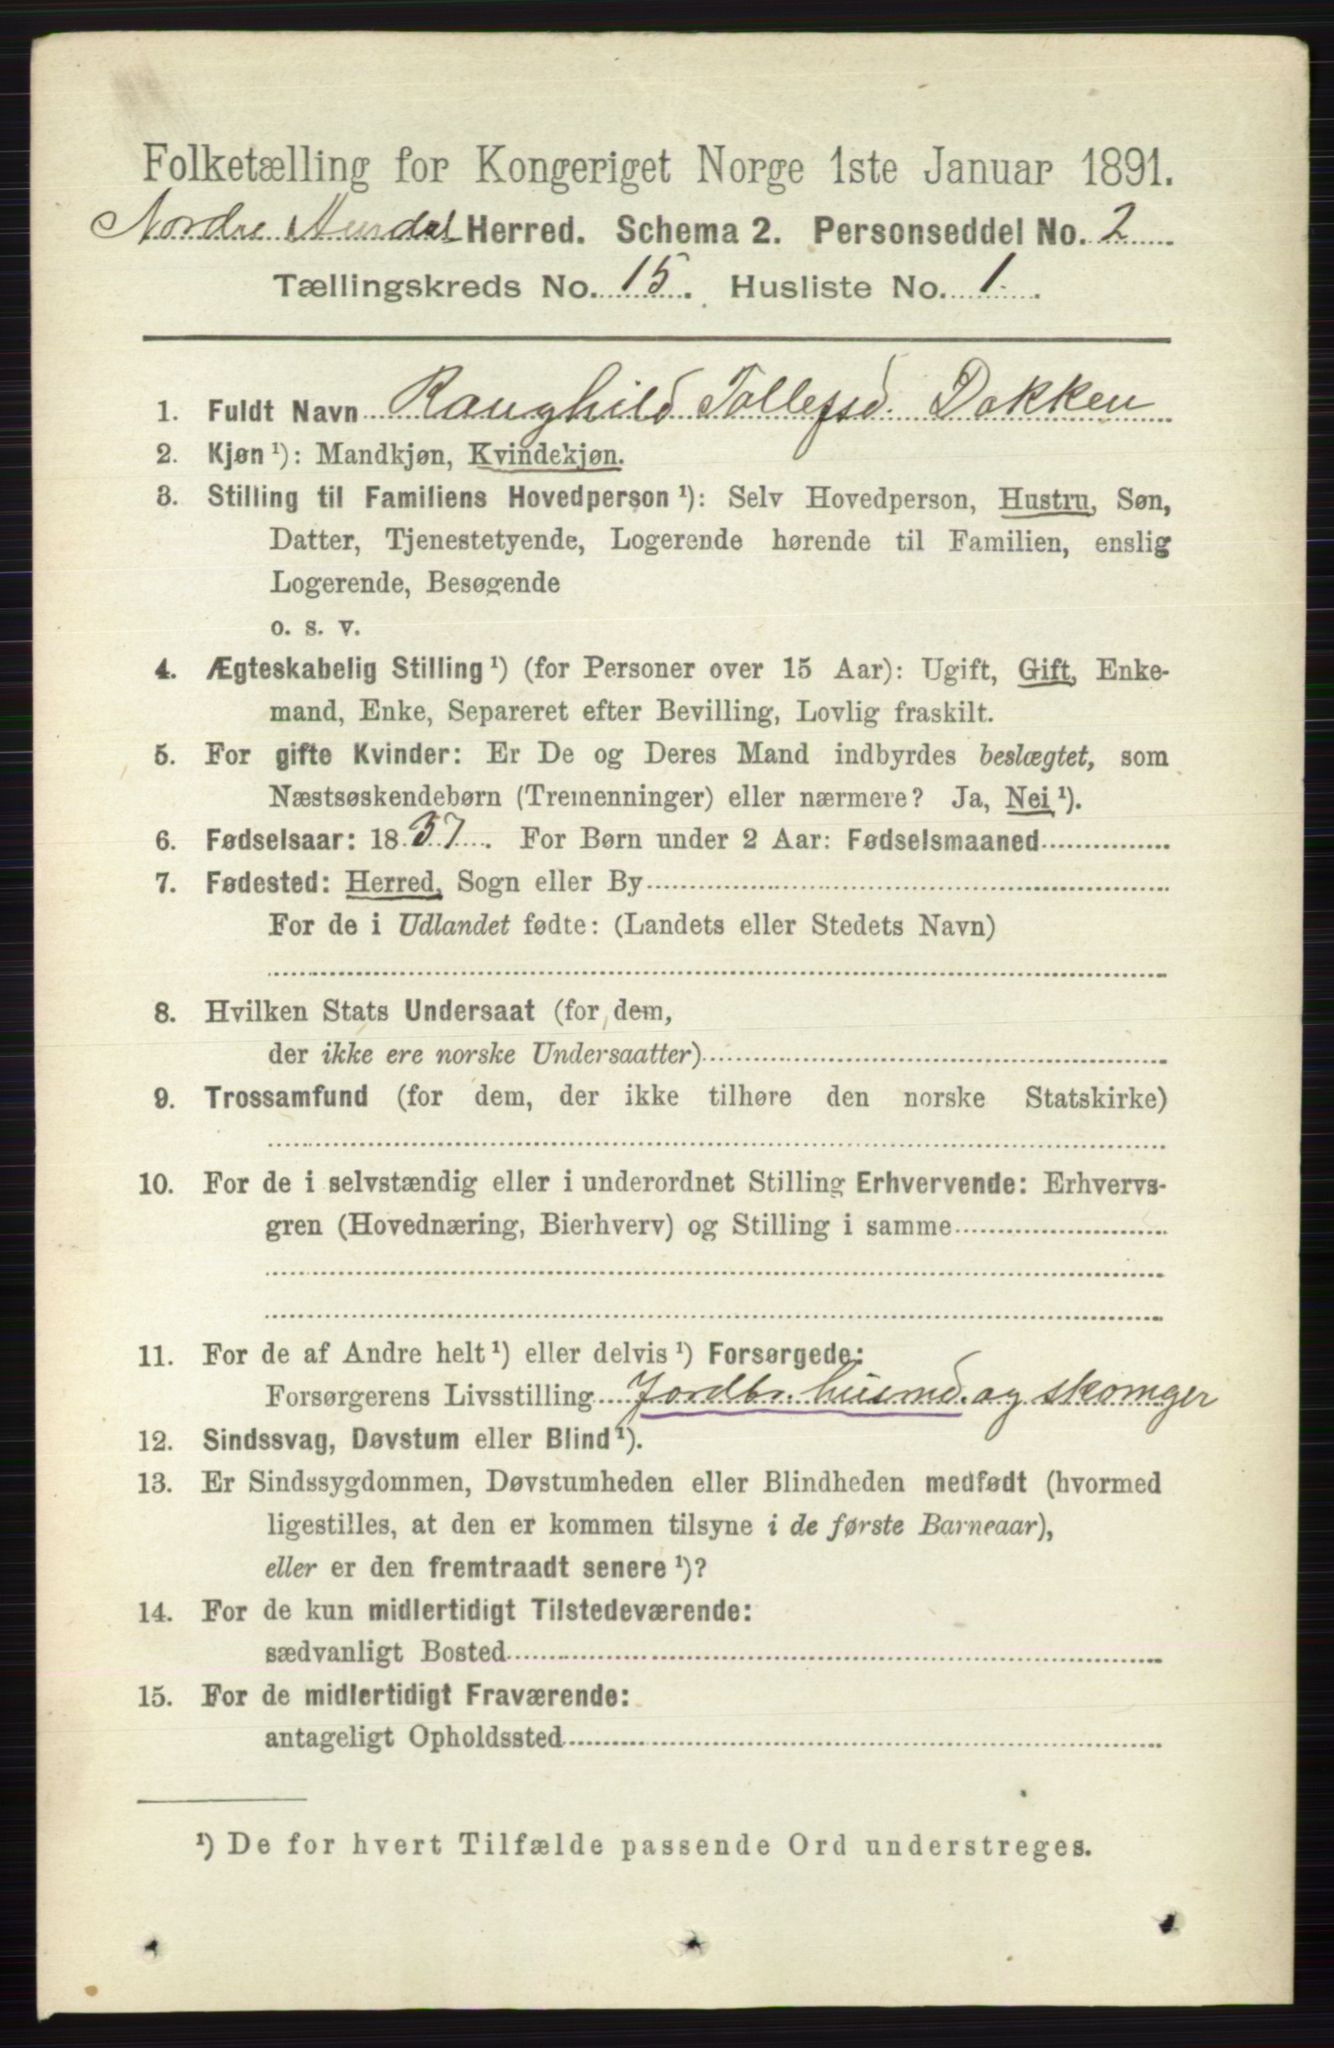 Folketælling for Kongeriget Norge 1ste Januar 1891.
Nordre Aurdal Herred. Schema 2. Personseddel No. 2
Tællingskreds No. 15. Husliste No. 1.
1. Fuldt Navn Ranghild Tollefsd. Dokken
2. Kjøn ¹): Mandkjøn, Kvindekjøn.
3. Stilling til Familiens Hovedperson ¹): Selv Hovedperson, Hustru, Søn,
Datter, Tjenestetyende, Logerende hørende til Familien, enslig
Logerende, Besøgende
o. s. v.
4. Ægteskabelig Stilling ¹) (for Personer over 15 Aar): Ugift, Gift, Enke-
mand, Enke, Separeret efter Bevilling, Lovlig fraskilt.
5. For gifte Kvinder: Er De og Deres Mand indbyrdes beslægtet, som
Næstsøskendebørn (Tremenninger) eller nærmere? Ja, Nei ¹).
6. Fødselsaar: 1837. For Børn under 2 Aar: Fødselsmaaned
7. Fødested: Herred, Sogn eller By
For de i Udlandet fødte: (Landets eller Stedets Navn)
8. Hvilken Stats Undersaat (for dem,
der ikke ere norske Undersaatter)
9. Trossamfund (for dem, der ikke tilhøre den norske Statskirke)
10. For de i selvstændig eller i underordnet Stilling Erhvervende: Erhvervs-
gren (Hovednæring, Bierhverv) og Stilling i samme
11. For de af Andre helt ¹) eller delvis ¹) Forsørgede:
Forsørgerens Livsstilling Jordbr. husmd. og skomger
12. Sindssvag, Døvstum eller Blind ¹).
13. Er Sindssygdommen, Døvstumheden eller Blindheden medfødt (hvormed
ligestilles, at den er kommen tilsyne i de første Barneaar),
eller er den fremtraadt senere ¹)?
14. For de kun midlertidigt Tilstedeværende:
sædvanligt Bosted
15. For de midlertidigt Fraværende:
antageligt Opholdssted
¹) De for hvert Tilfælde passende Ord understreges.